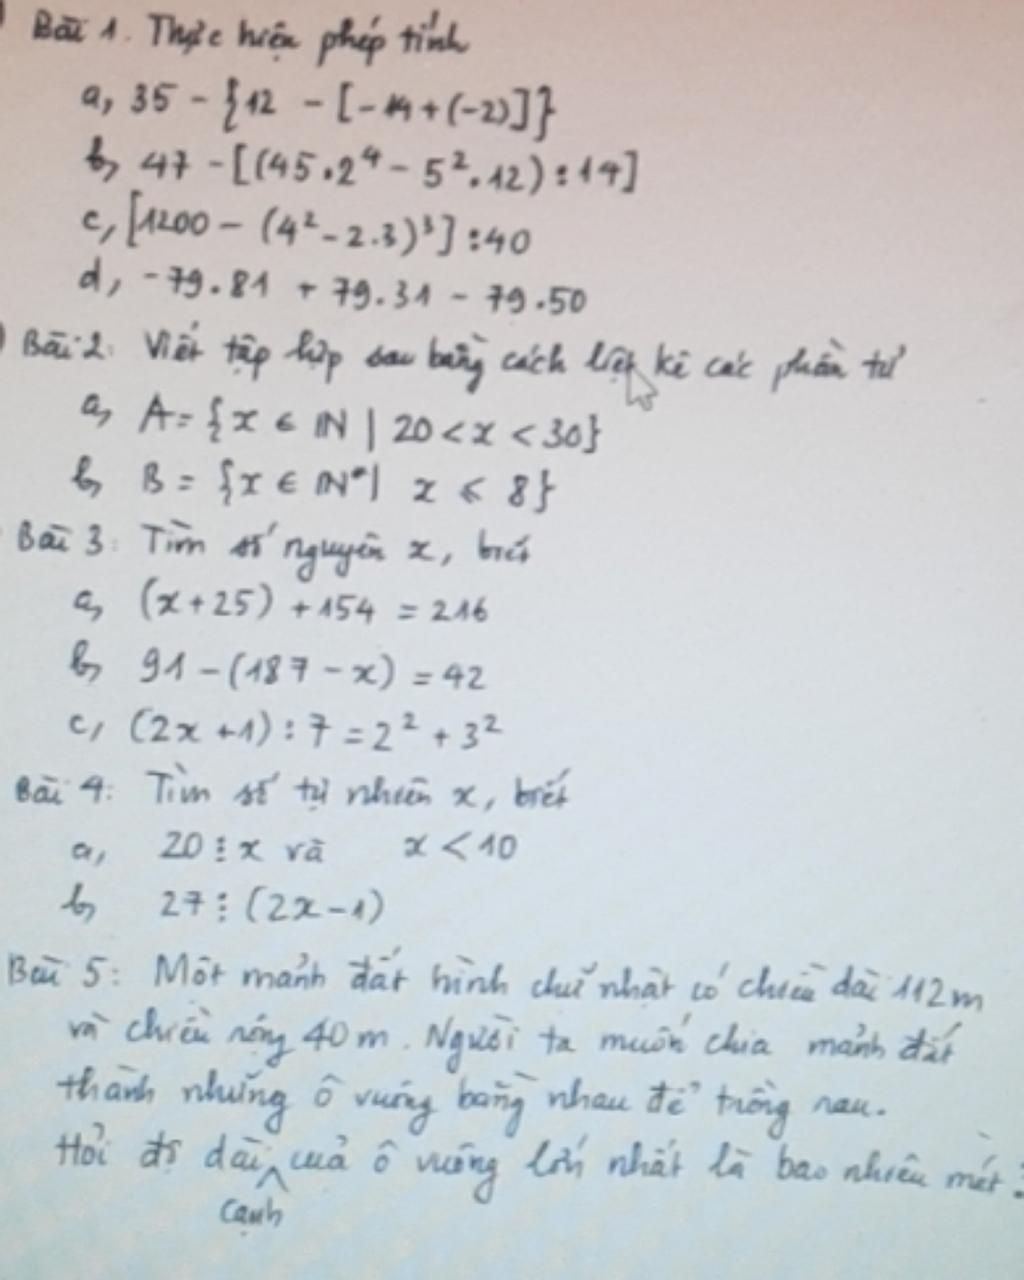 Bài 1. Thực hiện phép tính
a, 35 - {12 - [-14 + (-2)]}
b, 47 - [(45.2⁴ - 5².12) : 14]
c, [1200 - (4² - 2.3)³] : 40
d, -79.81 + 79.31 - 79.50
Bài 2: Viết tập hợp sau bằng cách liệt kê các phần tử
a, A = {x ∈ ℕ | 20 < x < 30}
b, B = {x ∈ ℕ* | x < 8}
Bài 3: Tìm số nguyên x, biết
a, (x + 25) + 154 = 216
b, 91 - (187 - x) = 42
c, (2x + 1) : 7 = 2² + 3²
Bài 4: Tìm số tự nhiên x, biết
a, 20 ⋮ x và x < 10
b, 27 ⋮ (2x - 1)
Bài 5: Một mảnh đất hình chữ nhật có chiều dài 112m
và chiều rộng 40m. Người ta muốn chia mảnh đất
thành những ô vuông bằng nhau để trồng rau.
Hỏi độ dài cạnh của ô vuông lớn nhất là bao nhiêu mét?